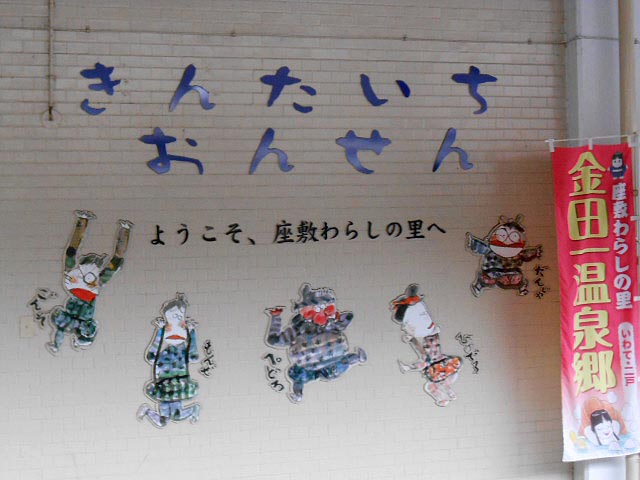 きんたいち
おんせん
ようこそ、座敷わらしの里へ
ぺどろ
座敷わらしの里
いわて・二戸
金田一温泉郷